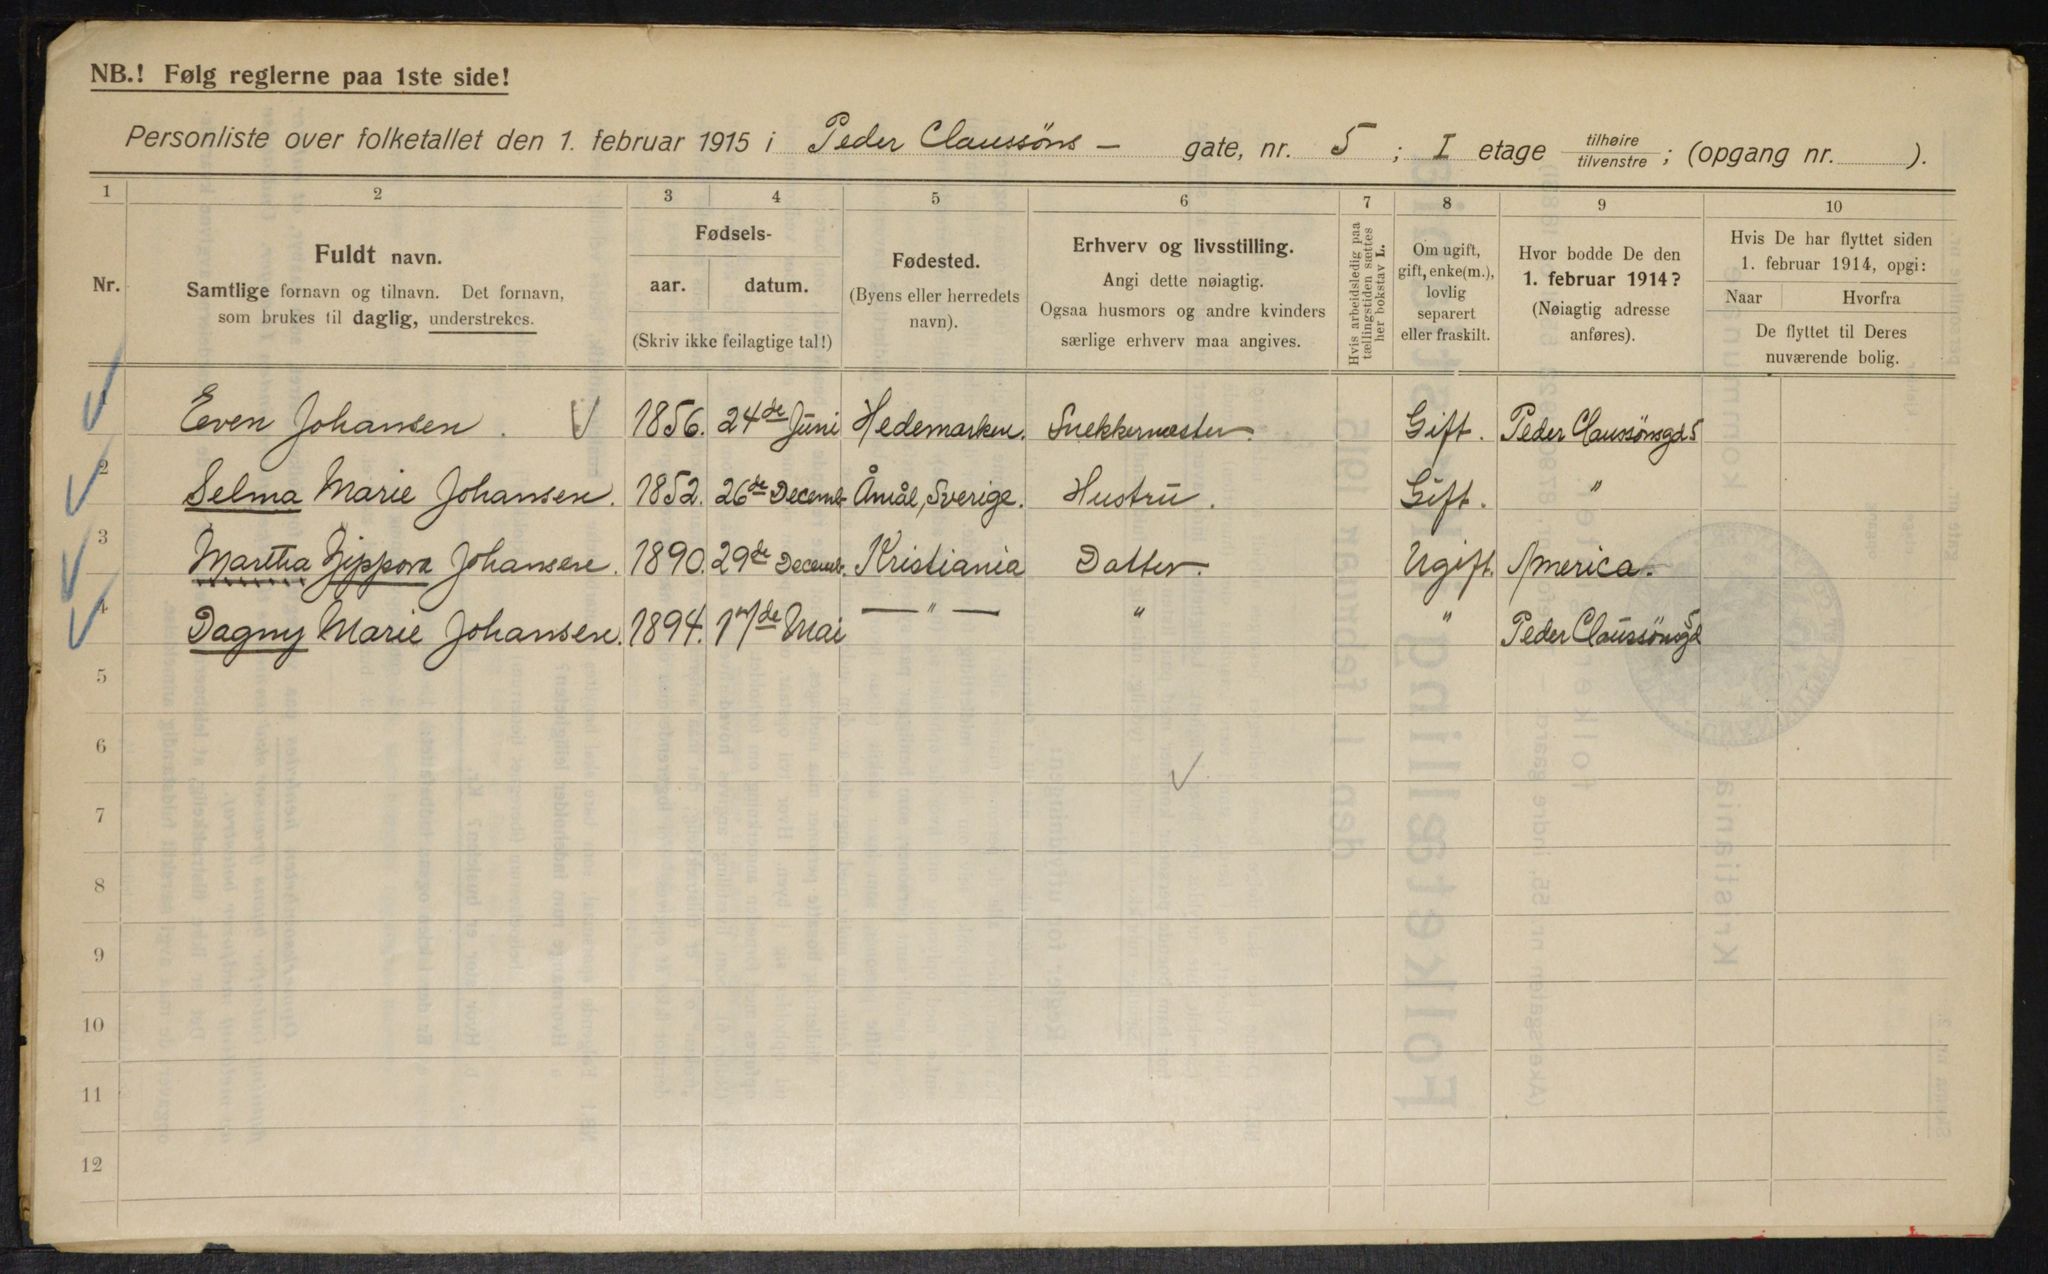 NB.! Følg reglerne paa 1ste side!
Personliste over folketallet den 1. februar 1915 i Peder Claussöns – gate, nr. 5 ; I etage tilhøire / tilvenstre ; (opgang nr. ).
1 2 3 4 5 6 7 8 9 10
Nr.
Fuldt navn.
Samtlige fornavn og tilnavn. Det fornavn,
som brukes til daglig, understrekes.
Fødsels-
aar. datum.
(Skriv ikke feilagtige tal!)
Fødested.
(Byens eller herredets
navn).
Erhverv og livsstilling.
Angi dette nøiagtig.
Ogsaa husmors og andre kvinders
særlige erhverv maa angives.
Hvis arbeidsledig paa
tællingstiden sættes
her bokstav L.
Om ugift,
gift, enke(m.),
lovlig
separert
eller fraskilt.
Hvor bodde De den
1. februar 1914?
(Nøiagtig adresse
anføres).
Hvis De har flyttet siden
1. februar 1914, opgi:
Naar Hvorfra
De flyttet til Deres
nuværende bolig.
1 Even Johansen. 1856. 24de Juni Hedemarken. Snekkermester. Gift. Peder Claussönsgd 5
2 Selma Marie Johansen. 1852. 26de Decemb. Åmål, Sverige. Hustru. Gift. "
3 Martha Zippora Johansen. 1890. 29de Decemb. Kristiania Datter. Ugift. America.
4 Dagny Marie Johansen. 1894. 17de Mai — " — " " Peder Claussönsgd 5
5
6
7
8
9
10
11
12